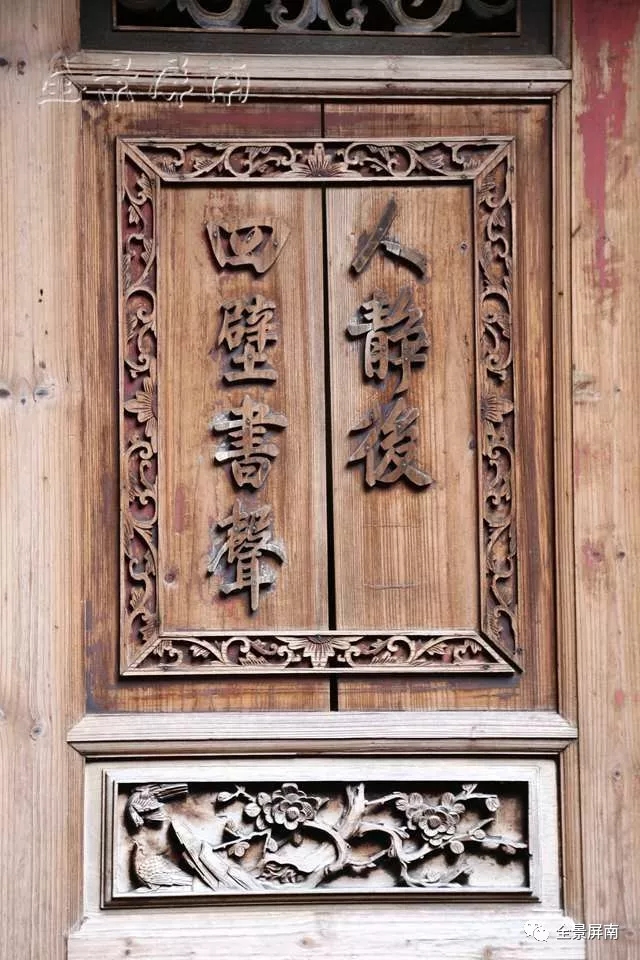 全景屏南
人静後
四壁書聲
全景屏南